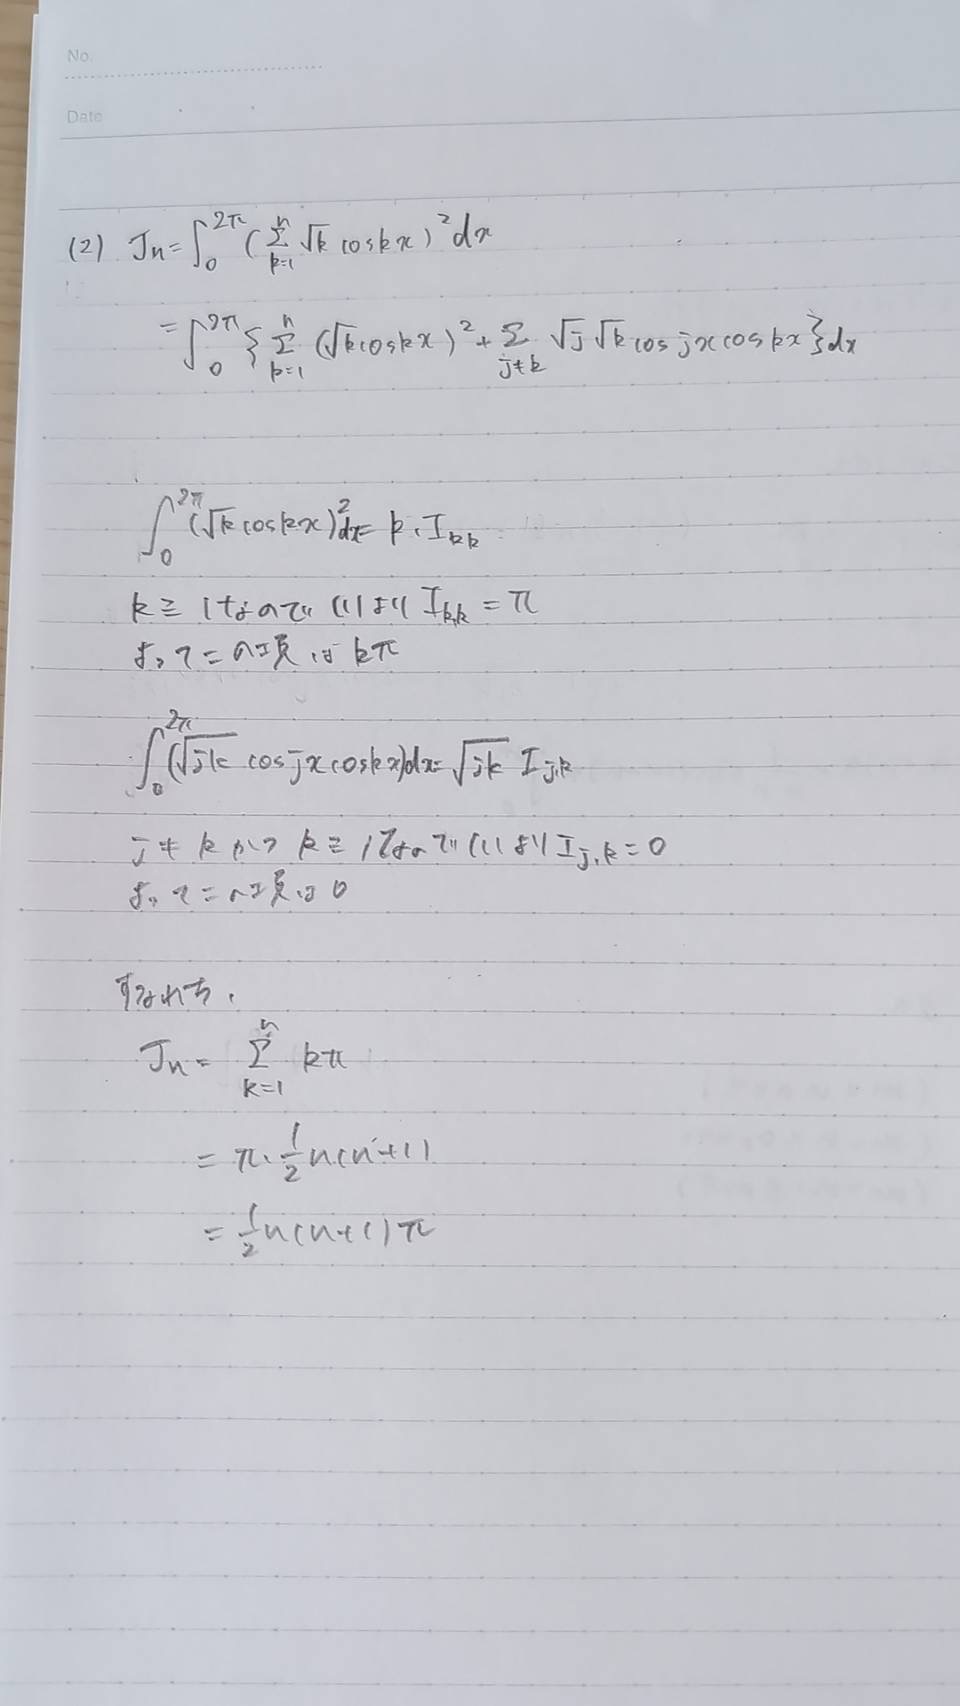 No.
Date
(2) Jn = ∫₀^{2π} (Σ_{k=1}^{n} √k cos kx)² dx
= ∫₀^{2π} { Σ_{k=1}^{n} (√k cos kx)² + Σ_{j≠k} √j √k cos jx cos kx } dx
∫₀^{2π} (√k cos kx)² dx = k・I_{kk}
k≧1なので (1)より I_{k,k} = π
よってこの項は kπ
∫₀^{2π} (√jk cos jx cos kx) dx = √jk I_{j,k}
j≠k かつ k≧1なので (1)より I_{j,k} = 0
よってこの項は 0
すなわち、
Jn = Σ_{k=1}^{n} kπ
= π・1/2 n(n+1)
= 1/2 n(n+1)π